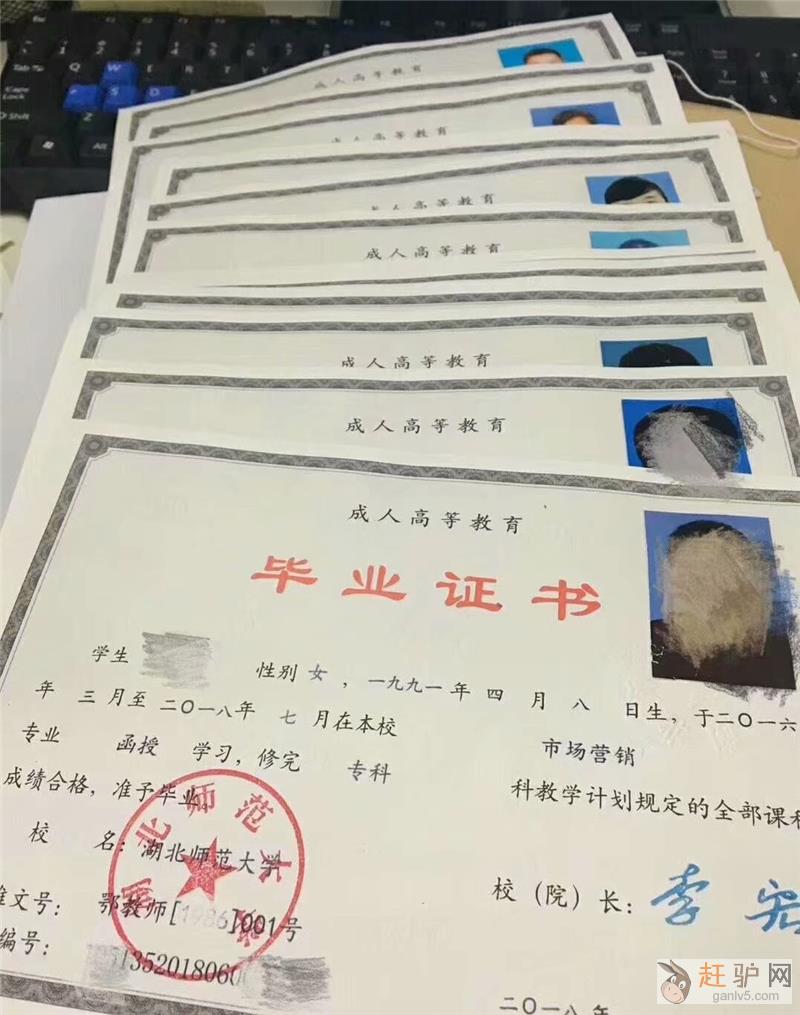 成人高等教育
成人高等教育
成人高等教育
成人高等教育
成人高等教育
成人高等教育
成人高等教育
毕业证书
学生 性别 女 , 一九九一 年 四 月 八 日生, 于二〇一六
年 三 月至 二〇一八年 七 月在本校 市场营销
专业 函授 学习, 修完 专科 科教学计划规定的全部课程
成绩合格, 准予毕业
校 名: 湖北师范大学 校(院)长: 李
准文号: 鄂教师[1986]001号
编号: 1352018060
二〇一八年
赶驴网
ganlv5.com
Tab
Caps Lock
Shift
Alt
Q
W
E
R
T
Y
S
D
Z